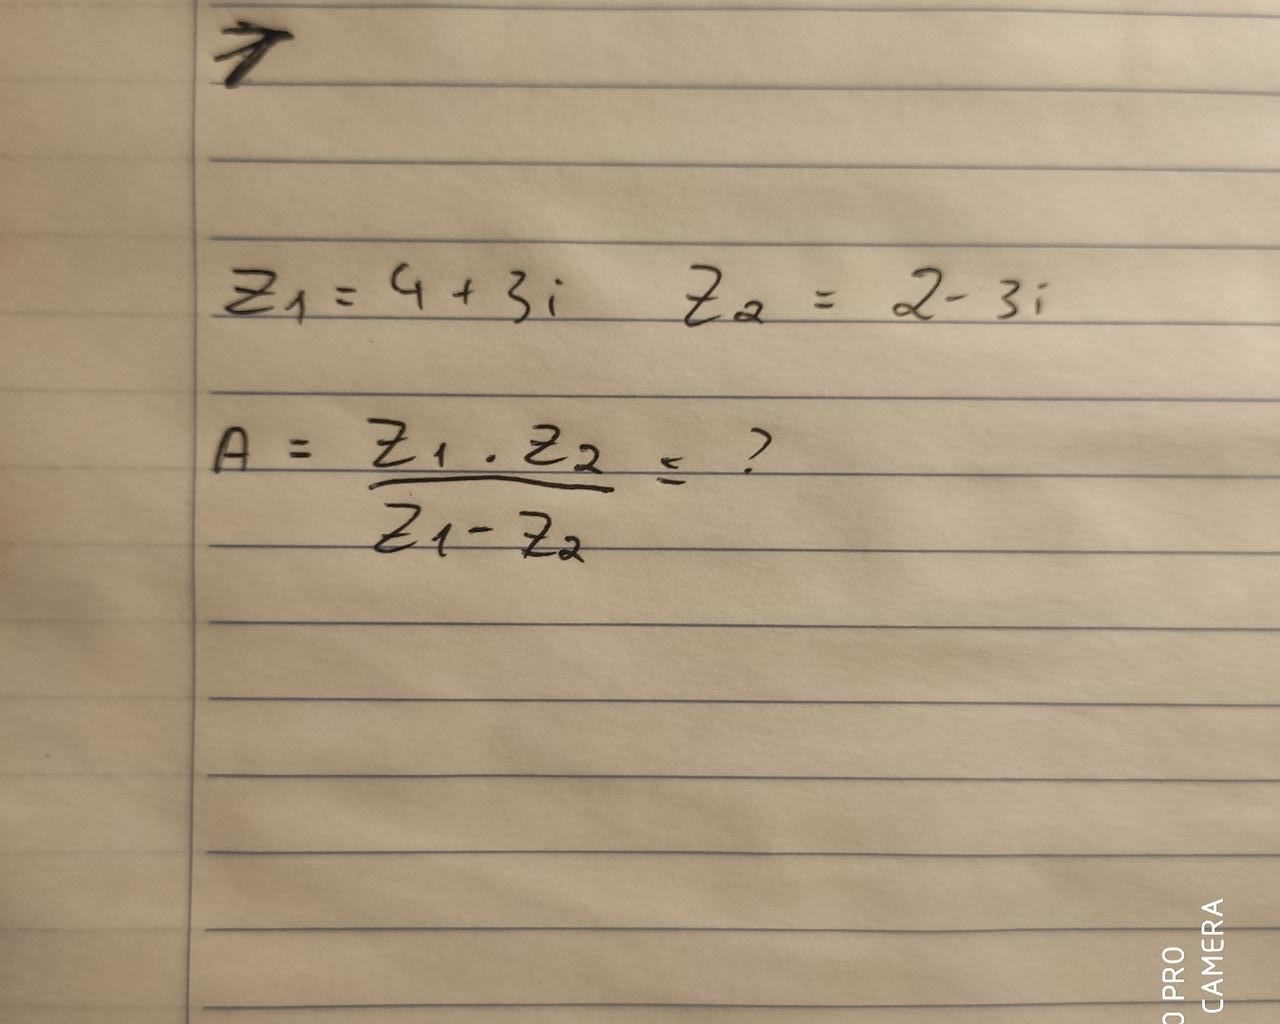 Z₁ = 4 + 3i Z₂ = 2 - 3i
A = Z₁ . Z₂ / Z₁ - Z₂ = ?
PRO
CAMERA